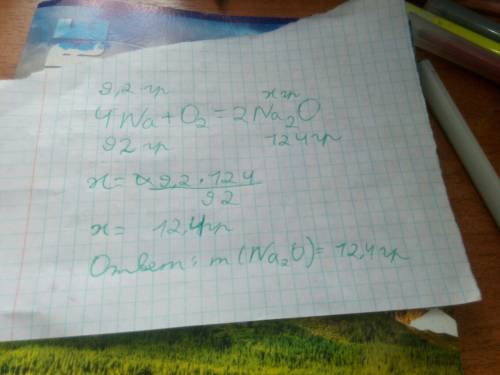 9,2 гр х гр
4Na + O₂ = 2Na₂O
92 гр 124 гр
х = 9,2 · 124 / 92
х = 12,4 гр
Ответ: m (Na₂O) = 12,4 гр